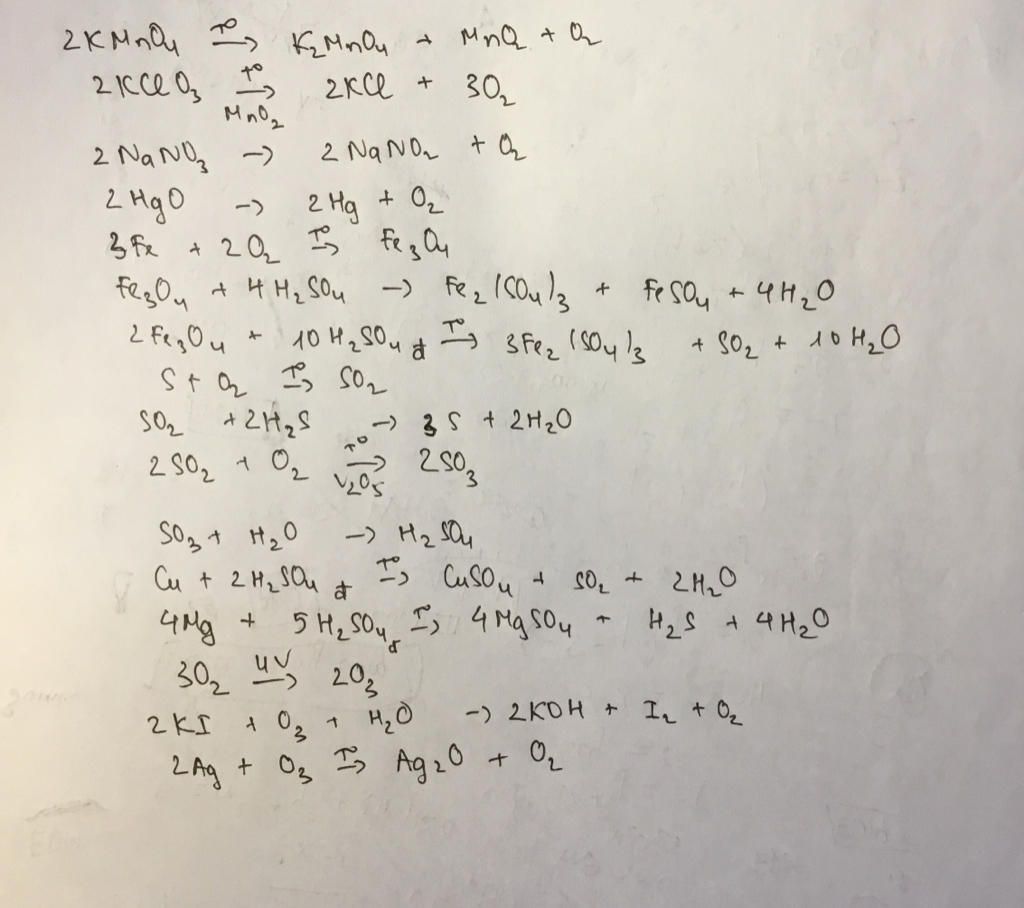 2KMnO₄ –t°→ K₂MnO₄ + MnO₂ + O₂
2KClO₃ –t°/MnO₂→ 2KCl + 3O₂
2NaNO₃ → 2NaNO₂ + O₂
2HgO → 2Hg + O₂
3Fe + 2O₂ –t°→ Fe₃O₄
Fe₃O₄ + 4H₂SO₄ → Fe₂(SO₄)₃ + FeSO₄ + 4H₂O
2Fe₃O₄ + 10H₂SO₄ đ –t°→ 3Fe₂(SO₄)₃ + SO₂ + 10H₂O
S + O₂ –t°→ SO₂
SO₂ + 2H₂S → 3S + 2H₂O
2SO₂ + O₂ –t°/V₂O₅→ 2SO₃
SO₃ + H₂O → H₂SO₄
Cu + 2H₂SO₄ đ –t°→ CuSO₄ + SO₂ + 2H₂O
4Mg + 5H₂SO₄ đ –t°→ 4MgSO₄ + H₂S + 4H₂O
3O₂ –UV→ 2O₃
2KI + O₃ + H₂O → 2KOH + I₂ + O₂
2Ag + O₃ –t°→ Ag₂O + O₂